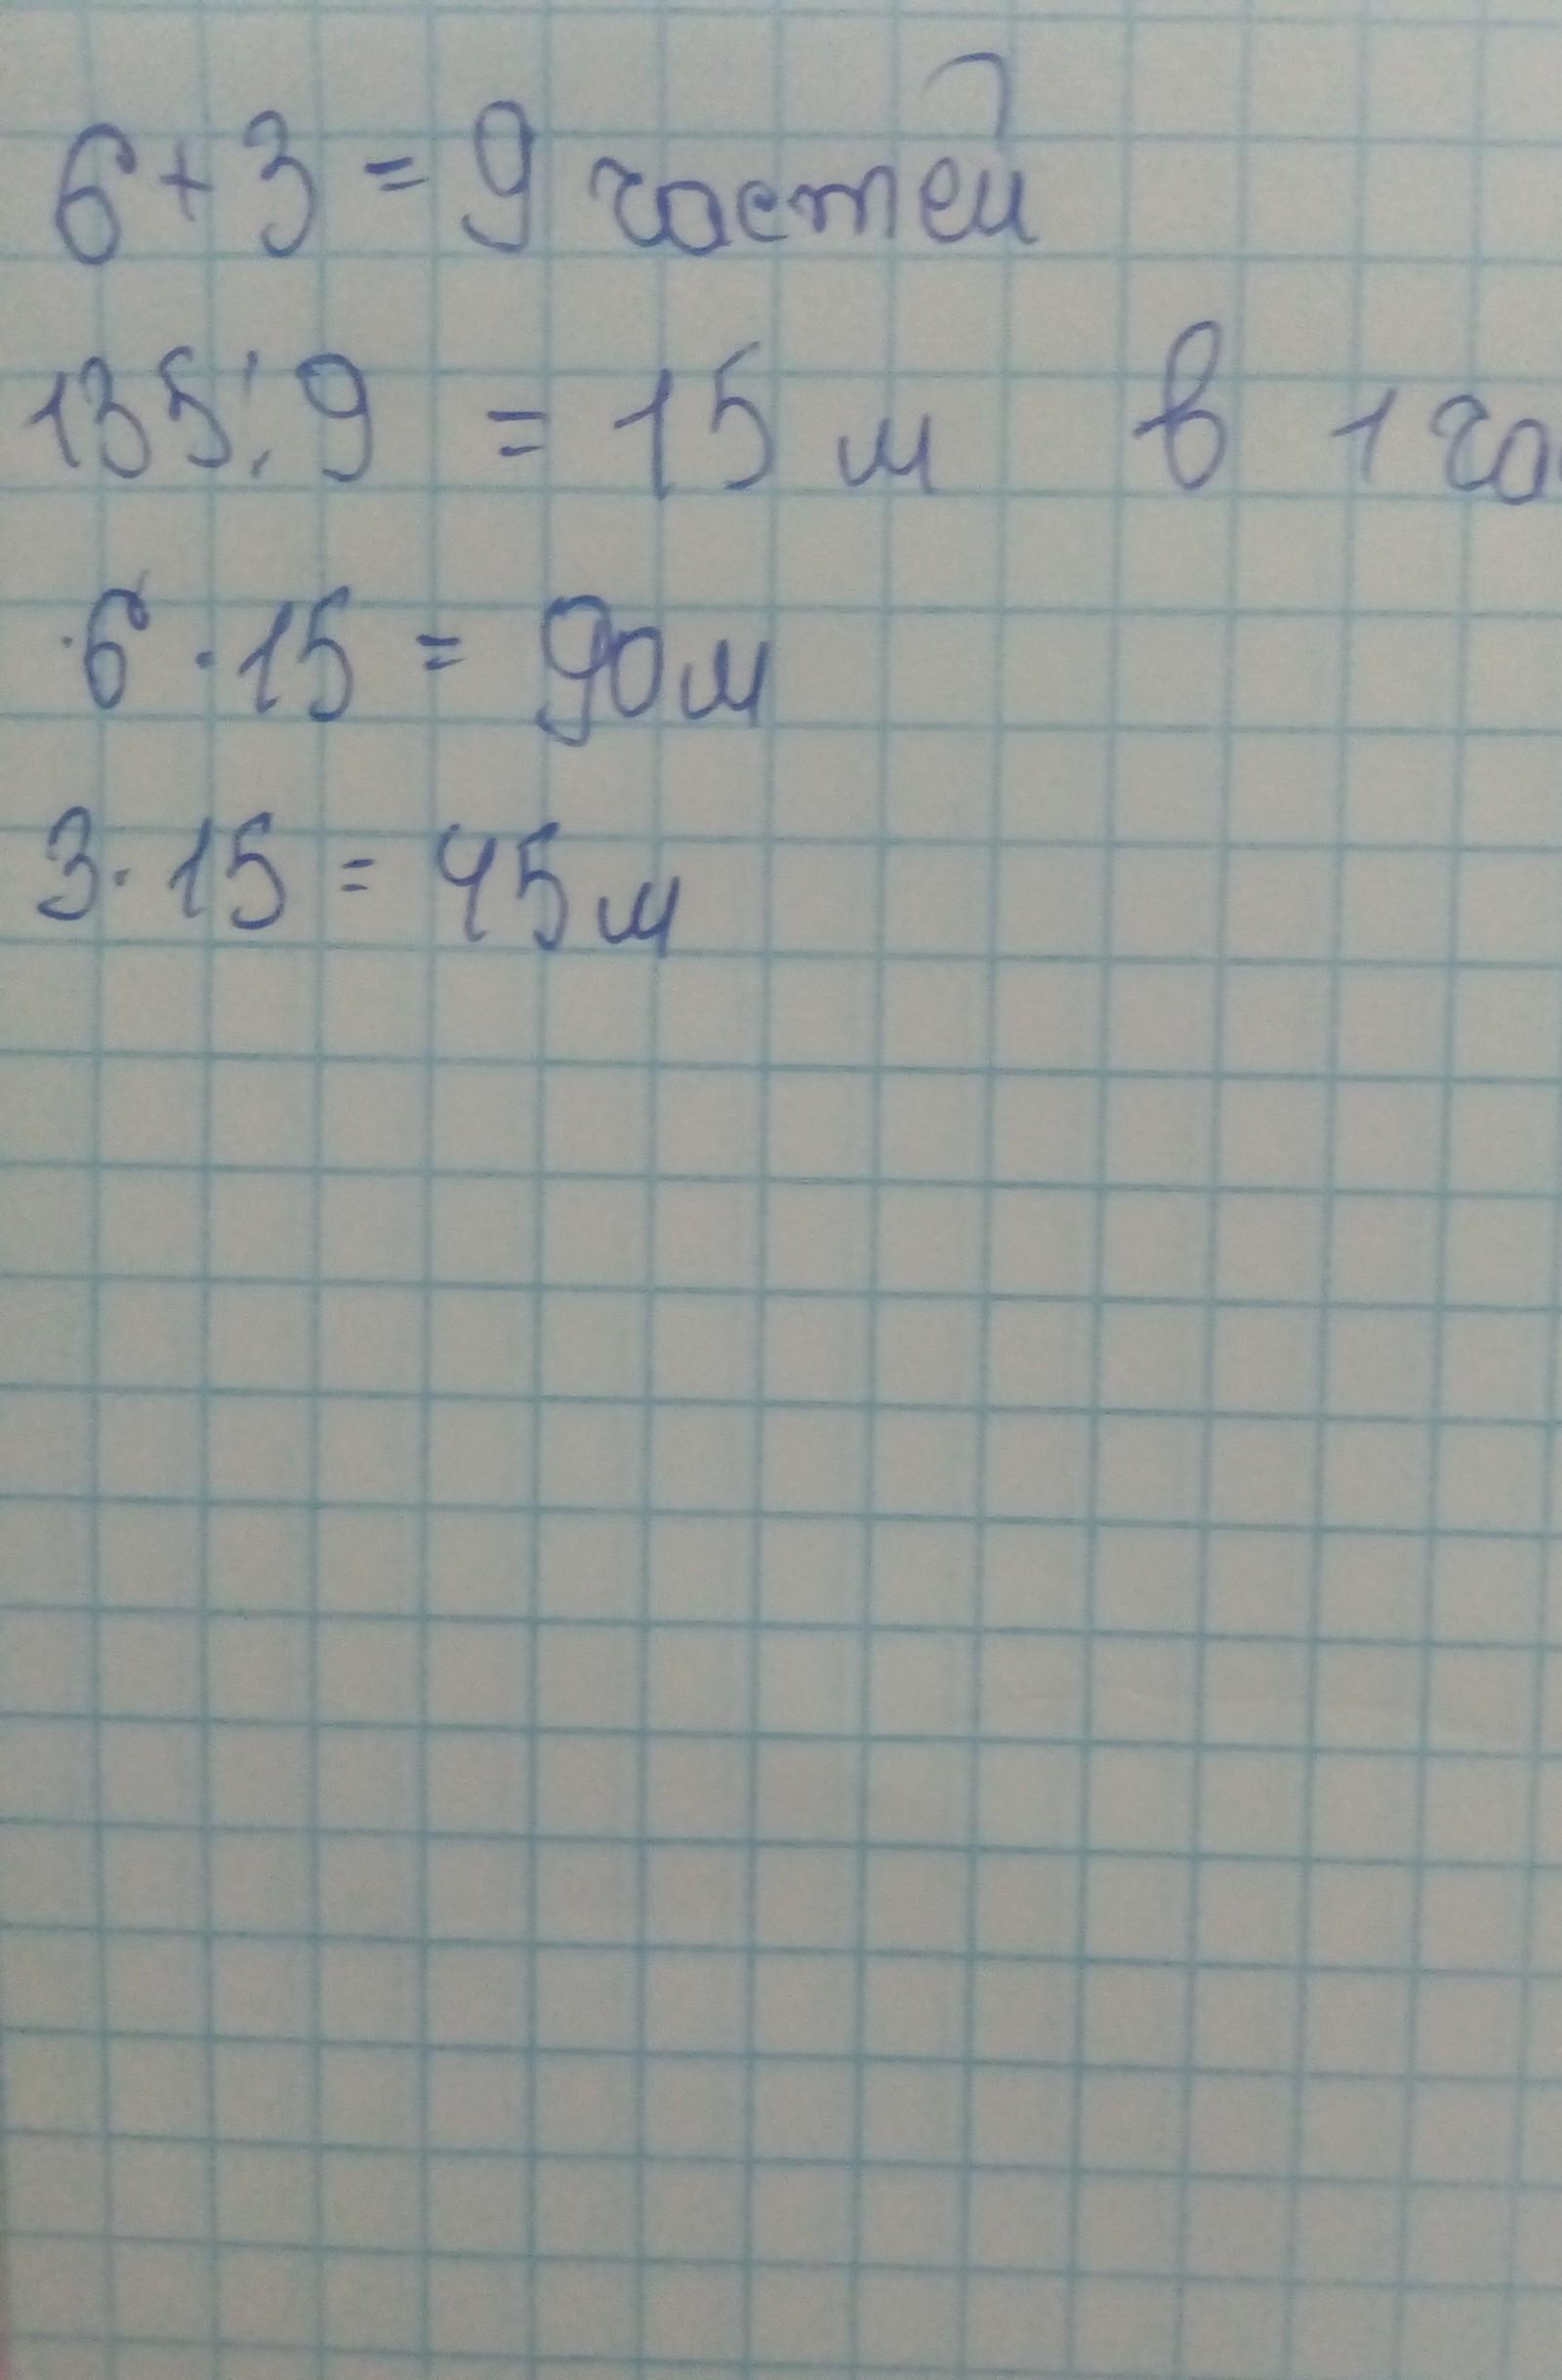 6+3=9 частей
135:9 = 15 м в 1 ча
6·15 = 90м
3·15=45м